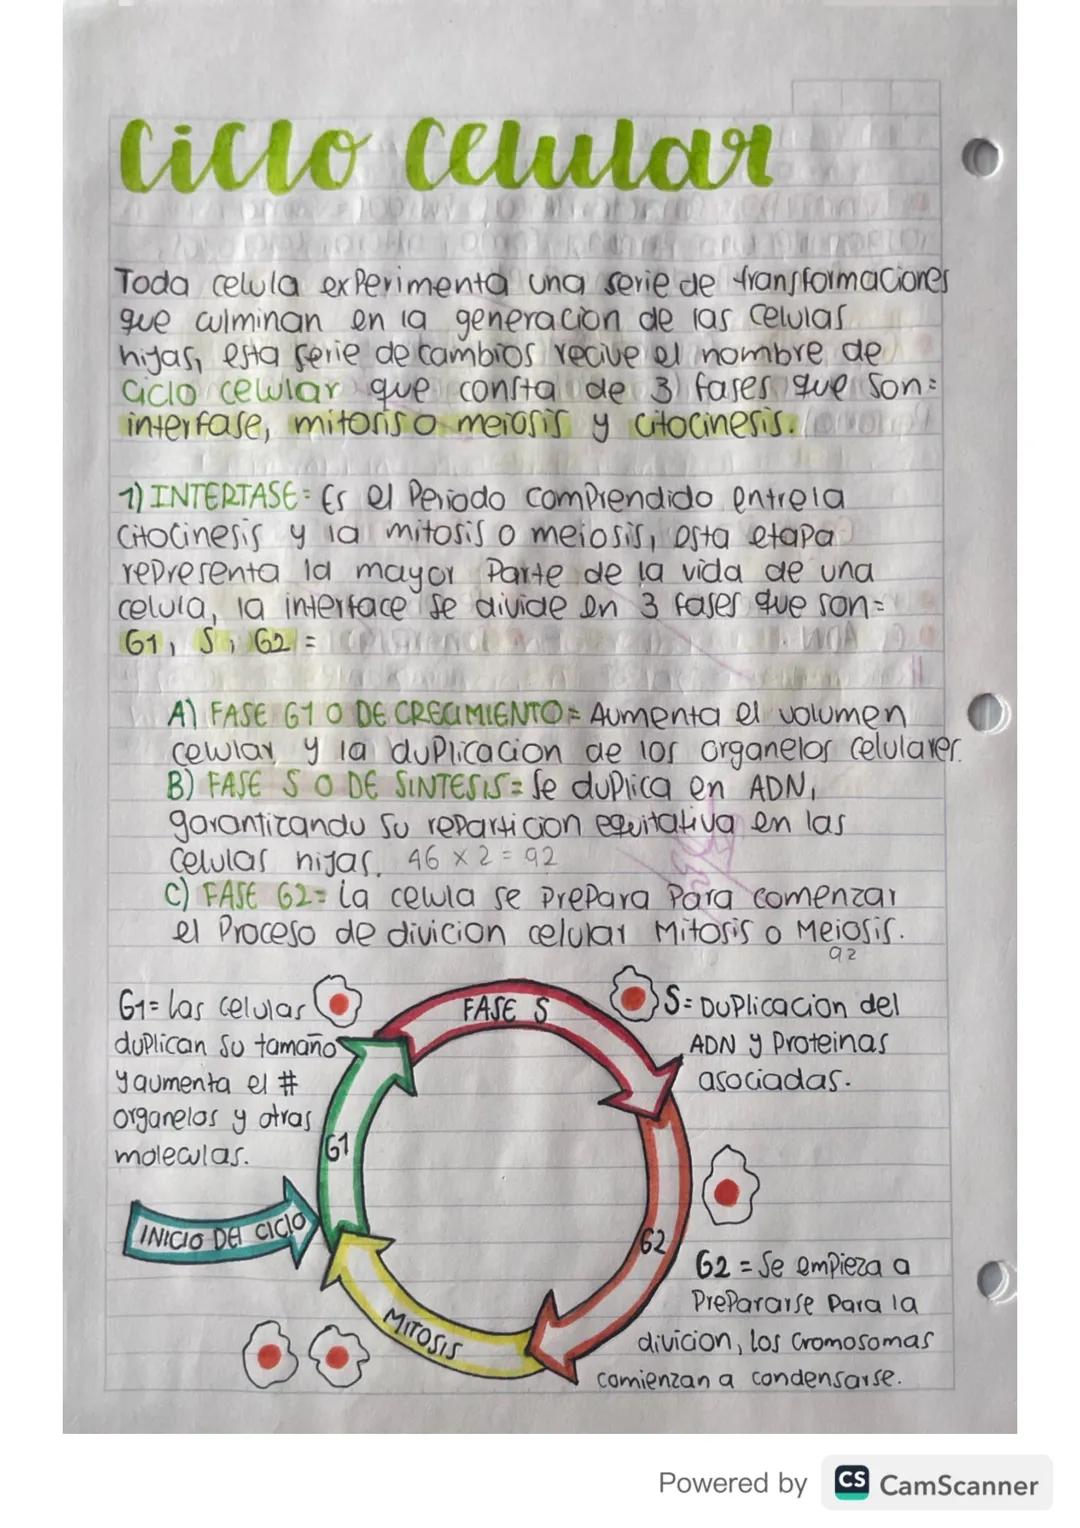 Ciclo Celular
Toda celula experimenta una serie de transformaciones
que culminan en la generacion de las celulas
hijas, esta serie de cambios recive el nombre de
ciclo celular que consta de 3 fases que son:
interfase, mitosis o meiosis y citocinesis.
1) INTERTASE= Es el Periodo comprendido entre la
citocinesis y la mitosis o meiosis, esta etapa
representa la mayor Parte de la vida de una
celula, la interface se divide en 3 fases que son=
G1, S, G2 =
A) FASE G1 O DE CRECIMIENTO= Aumenta el volumen
celular y la duplicacion de los organelos celulares.
B) FASE S O DE SINTESIS= Se duplica en ADN,
garantizando su reparticion equitativa en las
celulas hijas. 46 x 2 = 92
C) FASE G2= la celula se prepara para comenzar
el Proceso de divicion celular Mitosis o Meiosis.
92
G1= las celulas
duplican su tamaño
y aumenta el #
organelos y otras
moleculas.
FASE S
S= Duplicacion del
ADN y Proteinas
asociadas.
G1
INICIO DEL CICLO
G2
G2 = Se empieza a
Prepararse Para la
divicion, los cromosomas
comienzan a condensarse.
MITOSIS
Powered by CS CamScanner